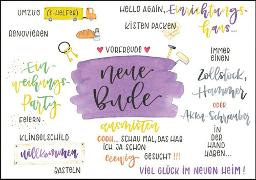 UMZUG (+HELFER)
HELLO AGAIN, Einrichtungs-
haus...
RENOVIEREN
KISTEN PACKEN
♥ VORFREUDE ♥
neue
Bude
Ein-
weihungs-
Party
FEIERN
IMMER
EINEN
Zollstock,
Hammer
ODER
Akku-Schrauber
IN DER
HAND
HABEN...
ausmisten
OOOH... SCHAU MAL, DAS HAB
ICH JA SCHON
eeewig GESUCHT!!!
KLINGELSCHILD
willkommen
BASTELN
VIEL GLÜCK IM NEUEN HEIM!